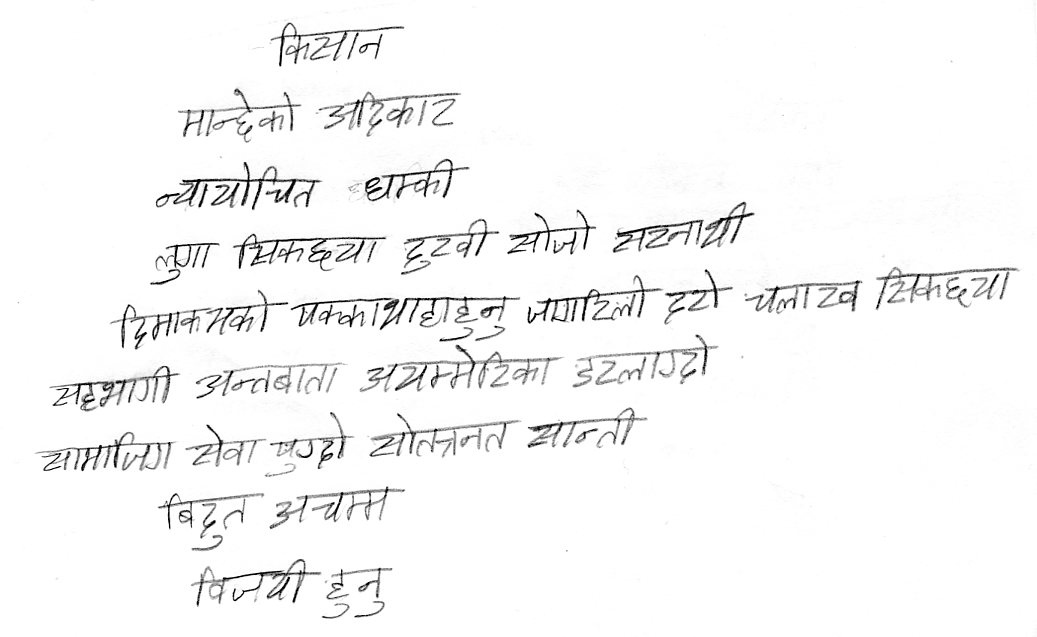 किसान
मान्छेको अदिकार
न्यायोचित धम्की
लुगा सिकछया टुरवी सोजो सरनाथी
दिमाकमको पक्काथाहाहुनु जगारिलो दरो चलाख सिकछया
सहभागी अन्तबाता अयम्मेरिका डरलाग्दो
सामाजिग सेवा पुग्दो सोतन्त्रनत सान्ती
बिदुत अचम्म
विजयी हुनु